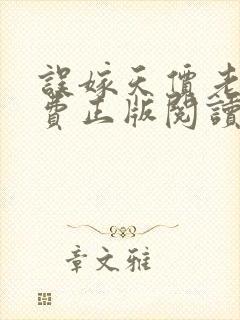 誤嫁天價老
費正版閱讀
章文雅